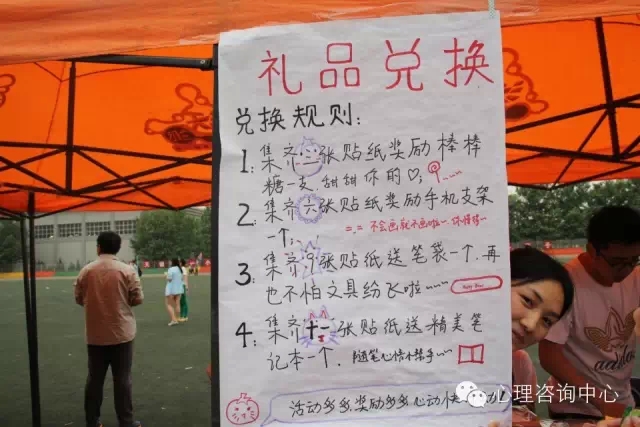 礼品兑换
兑换规则:
1: 集齐三张贴纸奖励棒棒
糖一支,甜甜你的♡;
2: 集齐六张贴纸奖励手机支架
一个;
=.= 不会画就不画啦… 你懂得…
3: 集齐9张贴纸送笔袋一个,再
也不怕文具纷飞啦~~~
4: 集齐十一张贴纸送精美笔
记本一个.随笔心情小帮手~~
活动多多,奖励多多,心动快
心理咨询中心
adidas